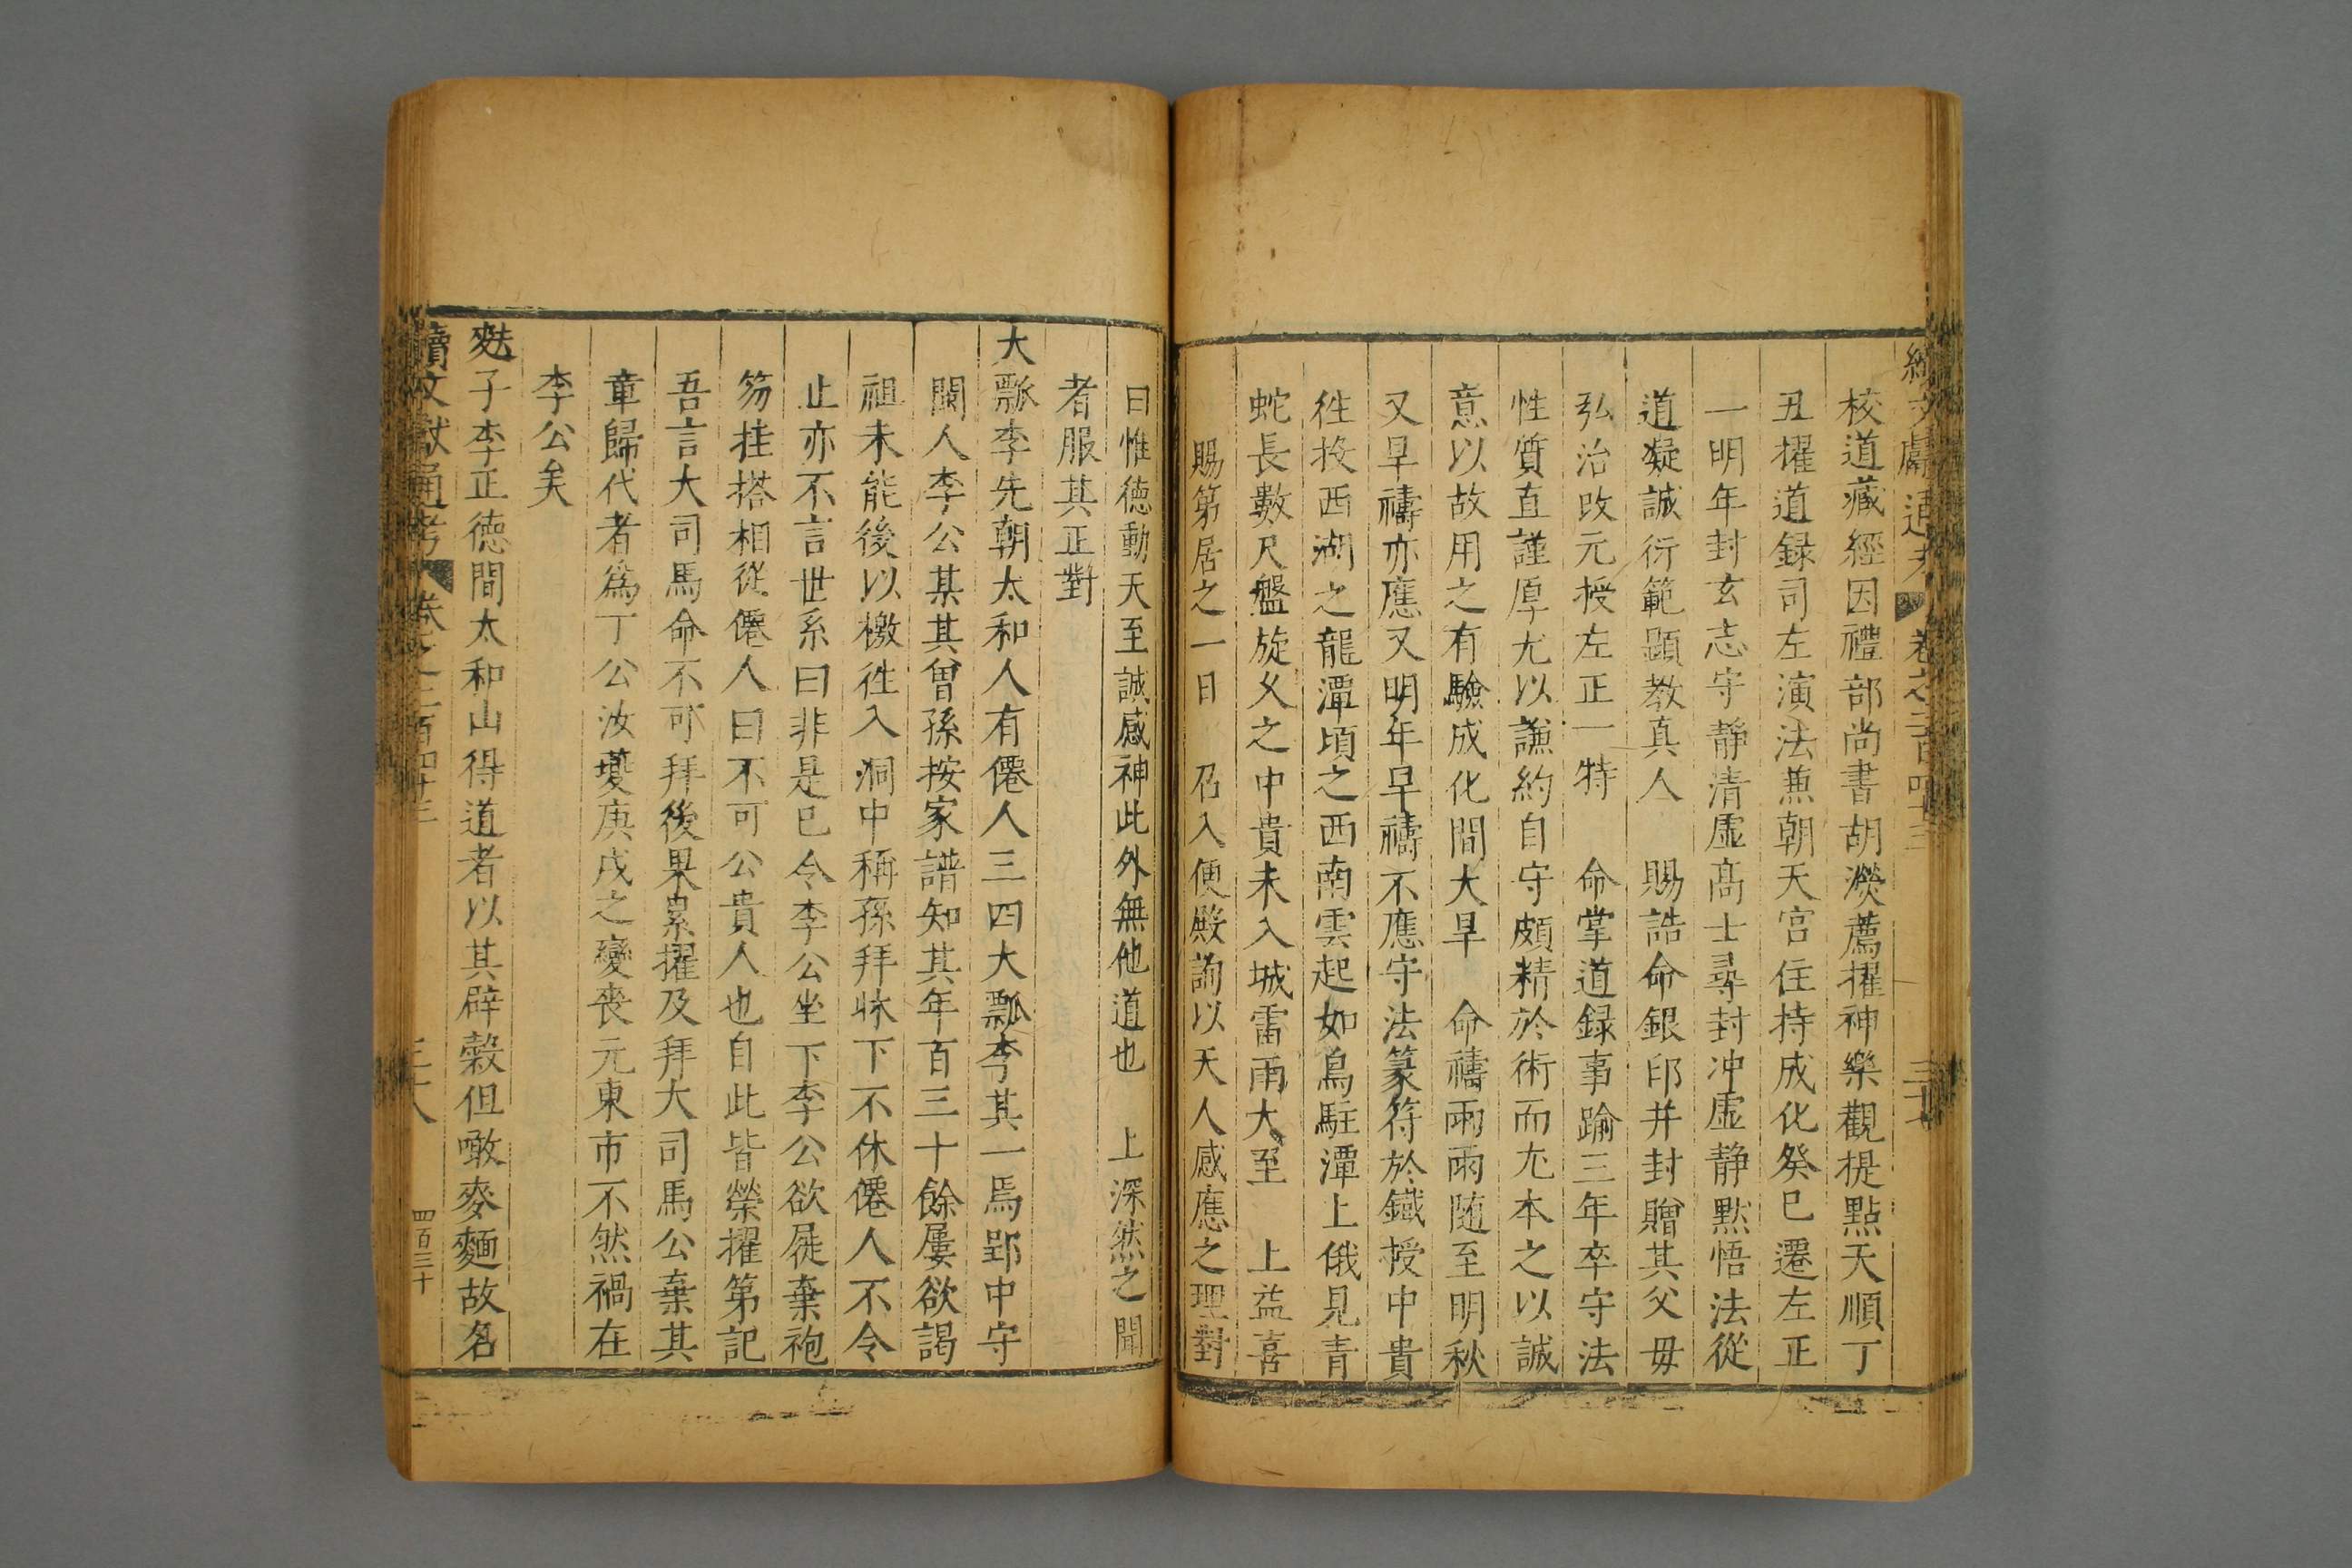 續文獻通考 卷之二百四十三 三十七
校道藏經因禮部尚書胡濙薦擢神樂觀提點天順丁
丑擢道録司左演法兼朝天宮住持成化癸巳遷左正
一明年封玄志守静清虚髙士尋封冲虚静黙悟法從
道凝誠衍範顯教真人 賜誥命銀印并封贈其父毋
弘治改元授左正一特 命掌道録事踰三年卒守法
性質直謹厚尤以謙約自守頗精於術而尤本之以誠
意以故用之有驗成化間大旱 命禱雨雨随至明秋
又旱禱亦應又明年旱禱不應守法篆符於鐡授中貴
徃投西湖之龍潭頃之西南雲起如鳥駐潭上俄見青
蛇長數尺盤旋乆之中貴未入城雷雨大至 上益喜
賜第居之一日 召入便殿詢以天人感應之理對
曰惟徳動天至誠感神此外無他道也 上深然之聞
者服其正對
大瓢李先朝太和人有僊人三四大瓢李其一焉郢中守
閽人李公某其曾孫按家譜知其年百三十餘屢欲謁
祖未能後以檄徃入洞中稱孫拜牀下不休僊人不令
止亦不言世系曰非是已令李公坐下李公欲屣棄袍
笏挂搭相從僊人曰不可公貴人也自此皆榮擢第記
吾言大司馬命不可拜後果累擢及拜大司馬公棄其
章歸代者為丁公汝夔庚戌之變喪元東市不然禍在
李公矣
麩子李正徳間太和山得道者以其辟榖但噉麥麵故名
續文獻通考 卷之二百四十三 三十八 四百三十